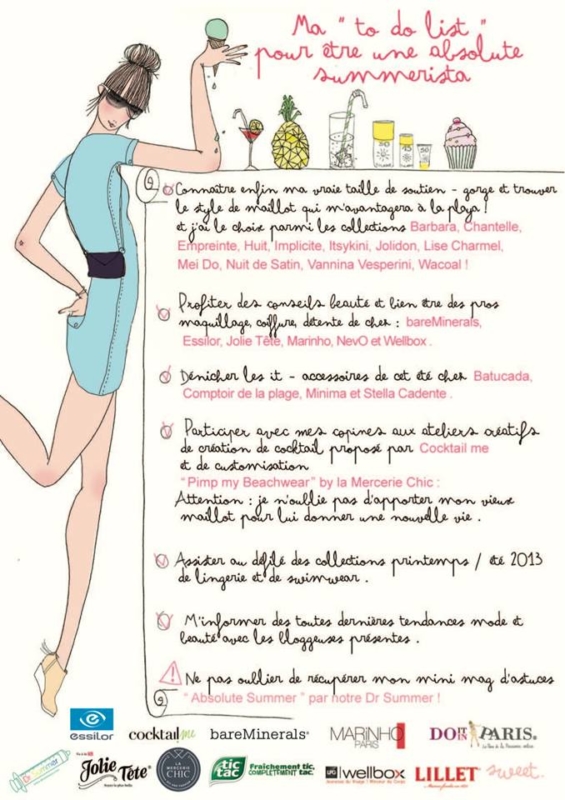 Ma "to do list"
pour être une absolute
summerista
50
45
30
Connaître enfin ma vraie taille de soutien-gorge et trouver
le style de maillot qui m'avantagera à la plage !
et j'ai le choix parmi les collections Barbara, Chantelle,
Empreinte, Huit, Implicite, Itsykini, Jolidon, Lise Charmel,
Mei Do, Nuit de Satin, Vannina Vesperini, Wacoal !
Profiter des conseils beauté et bien être des pros
maquillage, coiffure, détente de chez : bareMinerals,
Essilor, Jolie Tête, Marinho, NevO et Wellbox .
Dénicher les it - accessoires de cet été chez Batucada,
Comptoir de la plage, Minima et Stella Cadente .
Participer avec mes copines aux ateliers créatifs
de création de cocktail proposé par Cocktail me
et de customisation
"Pimp my Beachwear" by la Mercerie Chic :
Attention : je n'oullie pas d'apporter mon vieux
maillot pour lui donner une nouvelle vie .
Assister au défilé des collections printemps / été 2013
de lingerie et de swimwear .
M'informer des toutes dernières tendances mode et
beauté avec les bloggeuses présentes .
Ne pas oullier de récupérer mon mini mag d'astuces
"Absolute Summer" par notre Dr Summer !
essilor cocktail me bareMinerals MARINHO PARIS DO IT IN PARIS.
Dr Summer Jolie Tête LA MERCERIE CHIC tic tac Fraîchement tic, COMPLÈTEMENT tac. LPG wellbox LILLET sweet.